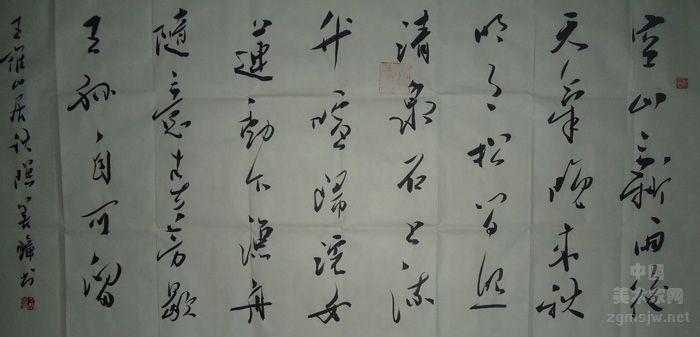 空山新雨後
天氣晚來秋
明月松間照
清泉石上流
竹喧歸浣女
蓮動下漁舟
隨意春芳歇
王孫自可留
王維山居秋暝 書
中国
美术家网
zgmsjw.net